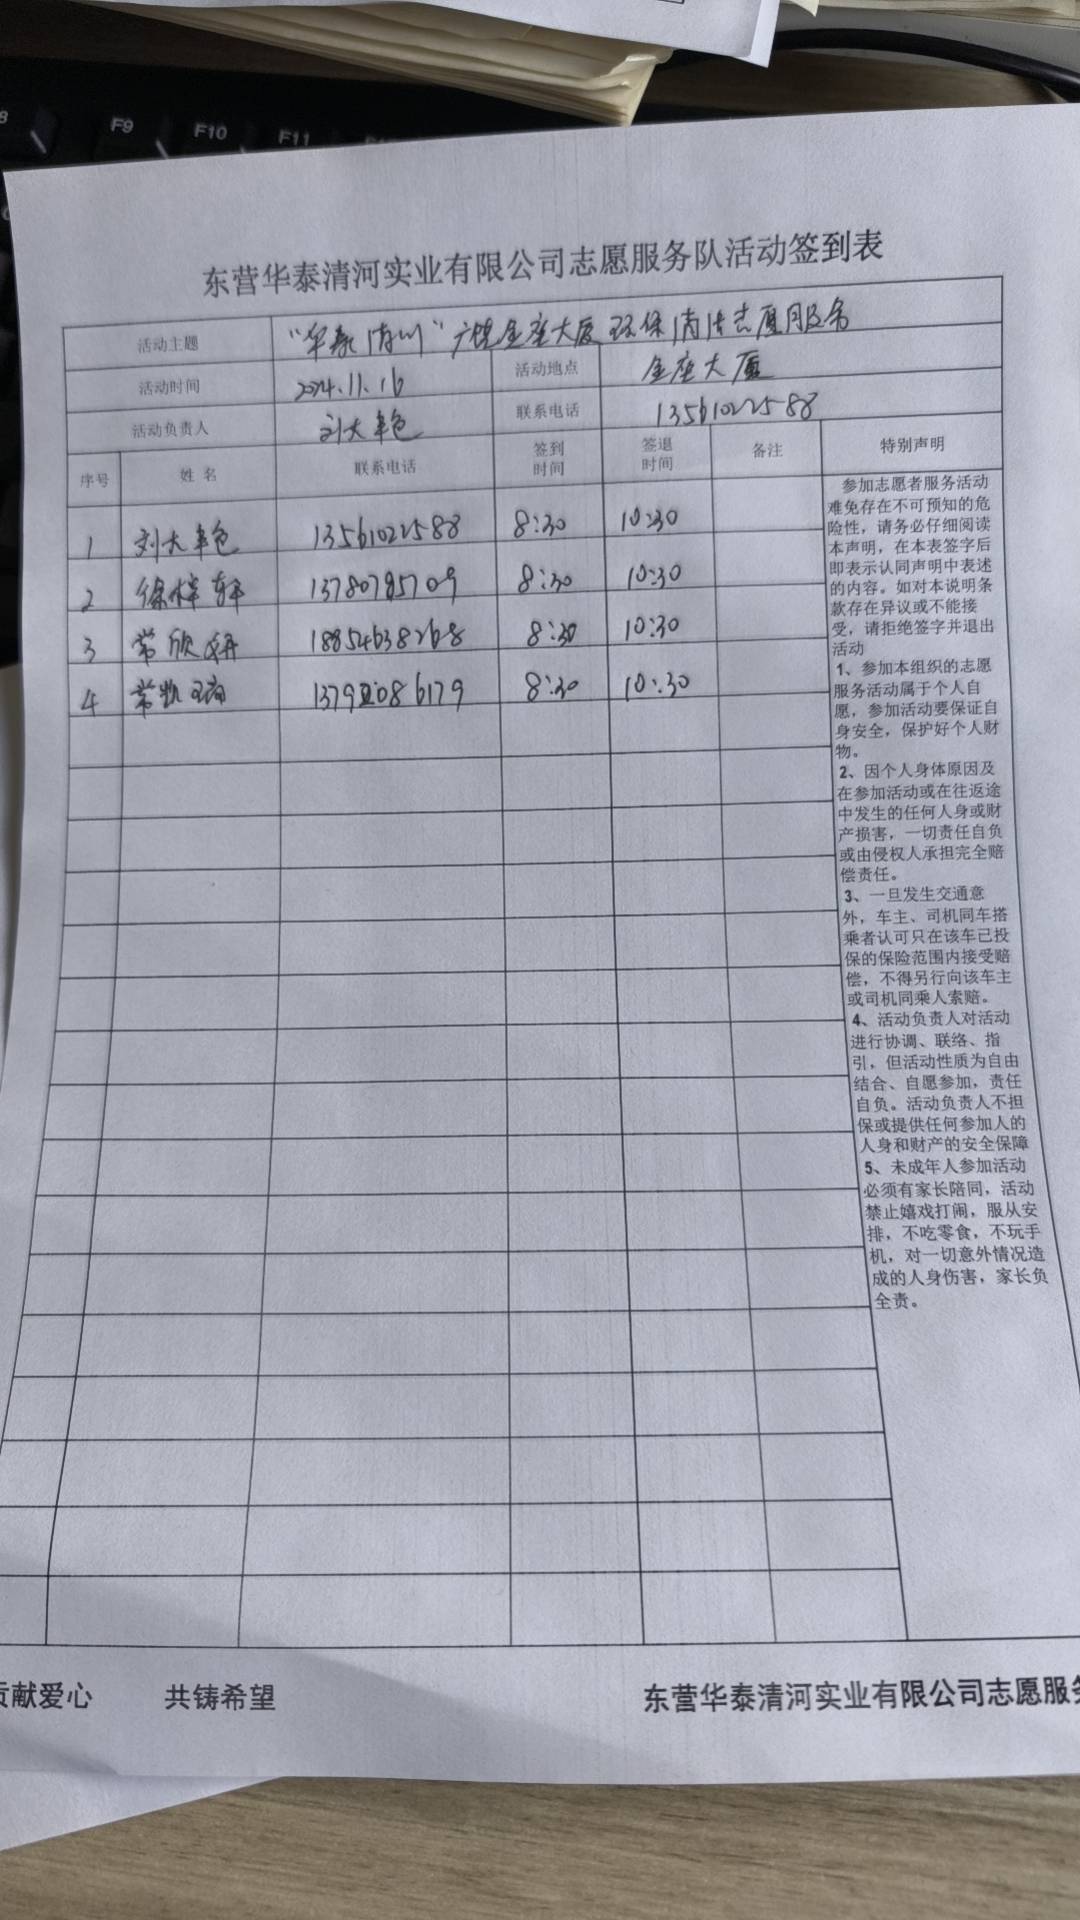 F9 F10 F11
东营华泰清河实业有限公司志愿服务队活动签到表
活动主题 "华泰清河"广饶金座大厦环保清洁志愿服务
活动时间 2024.11.16 活动地点 金座大厦
活动负责人 刘大艳 联系电话 13561022588
序号 姓名 联系电话 签到时间 签退时间 备注 特别声明
1 刘大艳 13561022588 8:30 10:30
2 徐梓轩 13780785709 8:30 10:30
3 常欣妍 18854638268 8:30 10:30
4 常凯 8:30 10:30
参加志愿者服务活动
难免存在不可预知的危
险性，请务必仔细阅读
本声明，在本表签字后
即表示认同声明中表述
的内容。如对本说明条
款存在异议或不能接
受，请拒绝签字并退出
活动
1、参加本组织的志愿
服务活动属于个人自
愿，参加活动要保证自
身安全，保护好个人财
物。
2、因个人身体原因及
在参加活动或在往返途
中发生的任何人身或财
产损害，一切责任自负
或由侵权人承担完全赔
偿责任。
3、一旦发生交通意
外，车主、司机同车搭
乘者认可只在该车已投
保的保险范围内接受赔
偿，不得另行向该车主
或司机同乘人索赔。
4、活动负责人对活动
进行协调、联络、指
引，但活动性质为自由
结合、自愿参加，责任
自负。活动负责人不担
保或提供任何参加人的
人身和财产的安全保障
5、未成年人参加活动
必须有家长陪同，活动
禁止嬉戏打闹，服从安
排，不吃零食，不玩手
机，对一切意外情况造
成的人身伤害，家长负
全责。
贡献爱心 共铸希望 东营华泰清河实业有限公司志愿服务